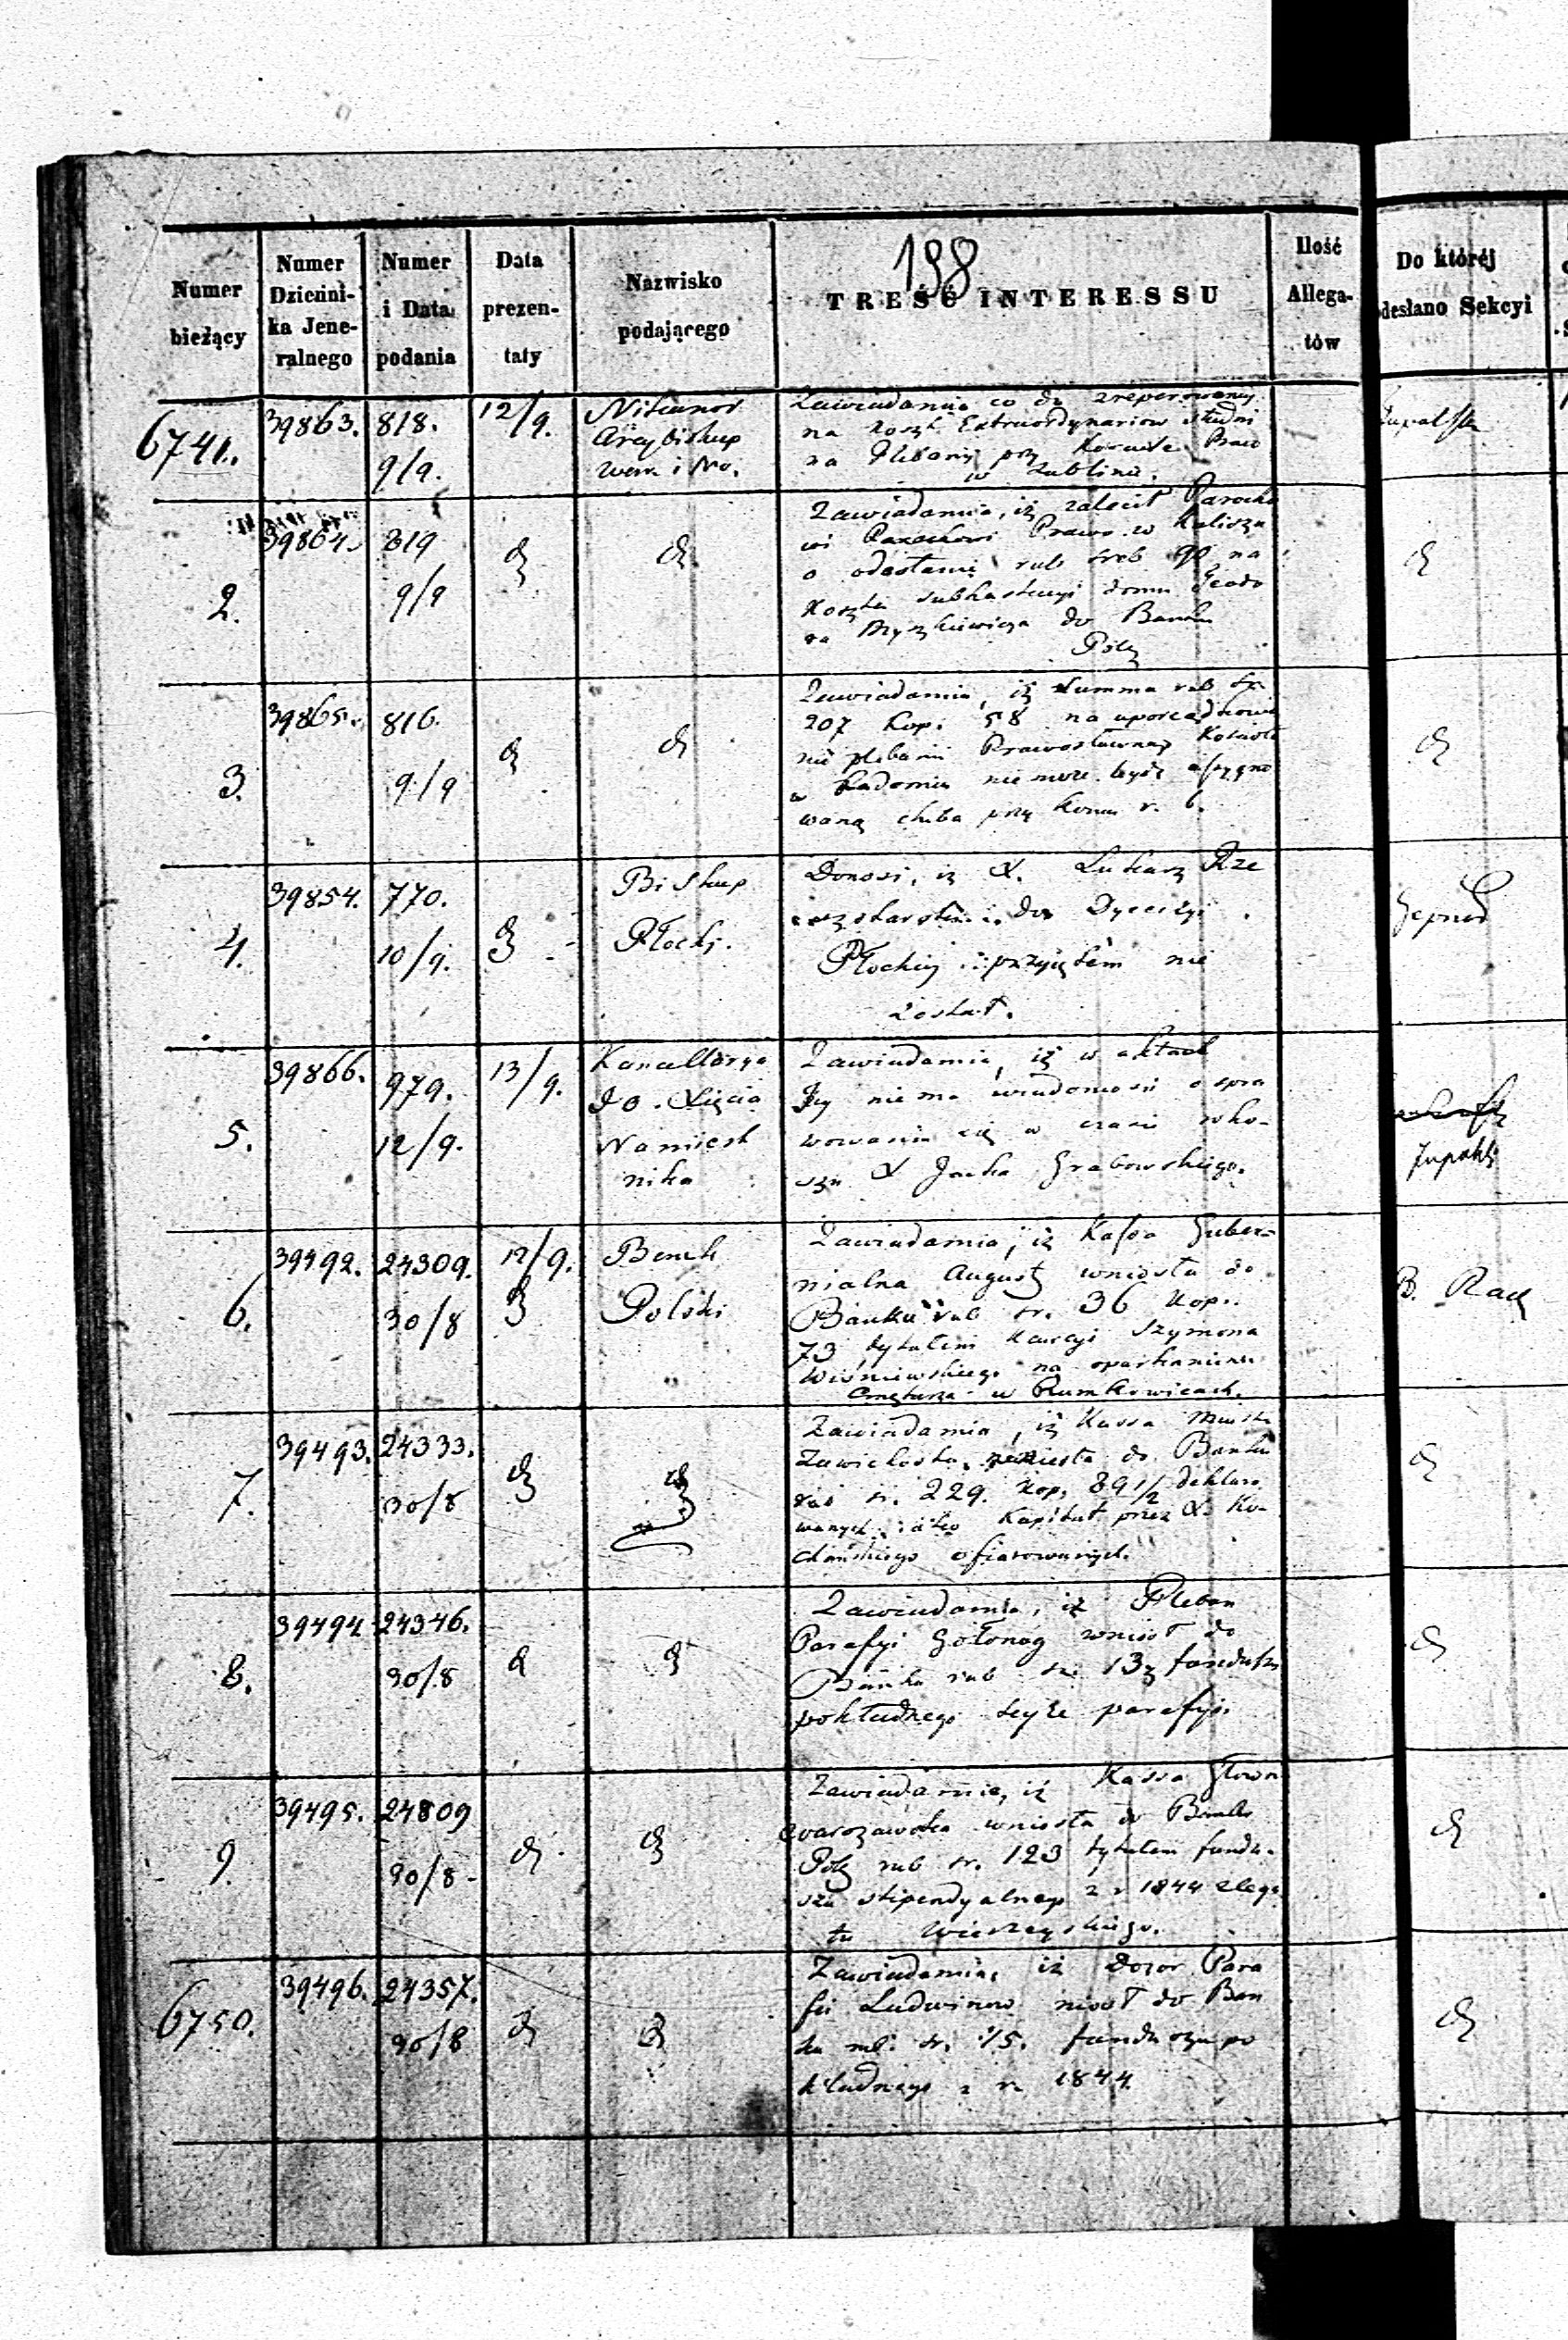 198
Numer bieżący
Numer Dzienni-ka Jene-ralnego
Numer i Data podania
Data prezen-taty
Nazwisko podającego
TREŚĆ INTERESSU
Ilość Allega-tów
Do któréj
desłano Sekcyi
6741. 39863. 818. 9/9. 12/9.
Nikanor
Arcybiskup
Warsz i No.
Zawiadamia co do zreperowanej
na koszt Extraordynariow studni
na Plebanij przy Kościele Praw
w Lublinie.
2. 39864. 819 9/9
Zawiadamia, iż zalecił Parocho
wi Parochowi Prawo. w Kaliszu
o odesłanie rub sreb 90 na
koszta subhastacyi domu Teodo
ra Myszkiewicza do Banku
Pols
3. 39865. 816. 9/9
Zawiadamia, iż summa rub sr.
207 kop. 58 na uporządkowa
nie plebanii Prawosławnego Kościoła
w Radomiu nie może być assygno
waną chiba przy końcu r. b.
4. 39854. 770. 10/9.
Biskup
Płocki.
Donosi, iż X. Łukasz
do Dyecezyi
Płockiej przyjętem nie
został.
5. 39866. 979. 12/9. 13/9.
Kancellarya
JO. Xięcia
Namiest
nika
Zawiadamia, iż w aktach
Jej niema wiadomości o spra
wowaniu się w czasie roko-
szu X Jacka Grabowskiego.
6. 39492. 24309. 30/8 12/9.
Bank
Polski
Zawiadamia, iż Kassa Guber-
nialna August wniosła do
Banku rub sr. 36 kop.
73 tytułem kaucyi Szymona
Wiśniewskiego na oparkanienie
Cmętarza w
7. 39493. 24333. 30/8
Zawiadamia, iż Kassa Miasta
Zawichosta wniosła do Banku
rub sr. 229. kop. 89 1/2 deklaro
wanych jako Kapitał przez X. Ko-
chańskiego ofiarowanych.
8. 39494. 24346. 30/8
Zawiadamia, iż Pleban
Parafyi Gołonog wniósł do
Banku rub sr. 13 z funduszu
pokładnego tejże parafyi.
9. 39495. 24809 30/8
Zawiadamia, iż Kassa Główn
Warszawska wniosła do Banku
Pols rub sr. 123 tytułem fundu-
szu stipendyalnego z r 1844 z lega
tu
6750. 39496. 24357. 30/8
Zawiadamia, iż Dozor Para
fii Ludwinow niosł do Ban
ku rub. sr. 15. funduszu po
kładnego z r. 1844.